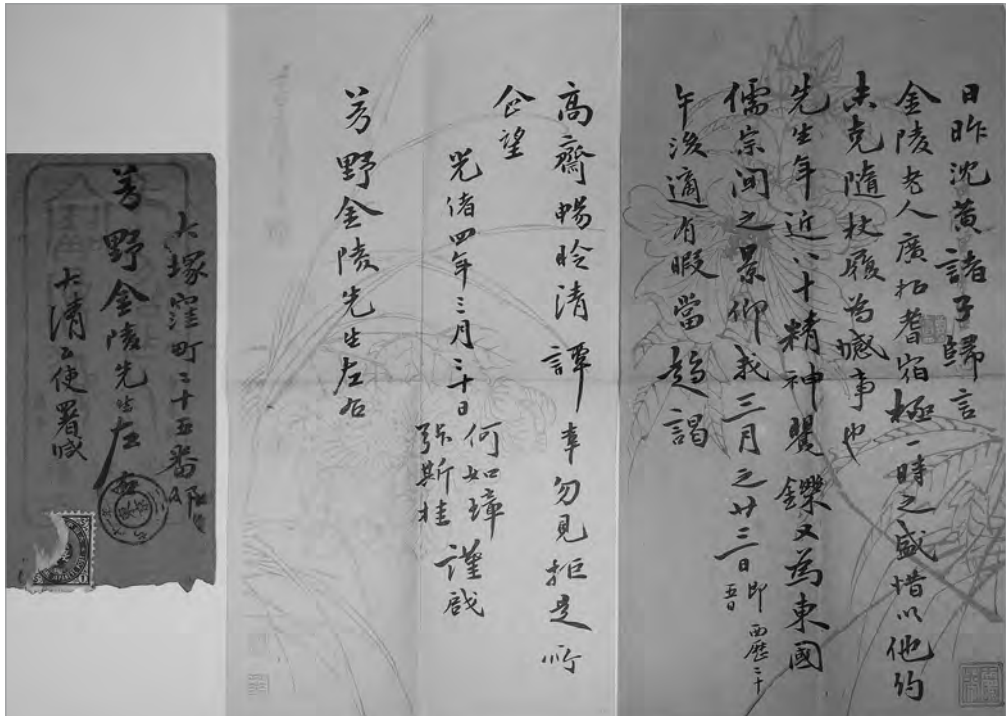 日昨沈黃諸子歸言
金陵老人廣招耆宿極一時之盛惜以他約
未克隨杖履為憾事也
先生年近八十精神矍鑠又為東國
儒宗聞之景仰我三月之廿三日即西歷二十五日
午後適有暇當趨謁
高齋暢聆清譚幸勿見拒是所
企望
光緒四年三月二十日
何如璋
張斯桂
謹啟
芳野金陵先生左右
大塚窪町二十五番邸
芳野金陵先生左右
大清公使署緘